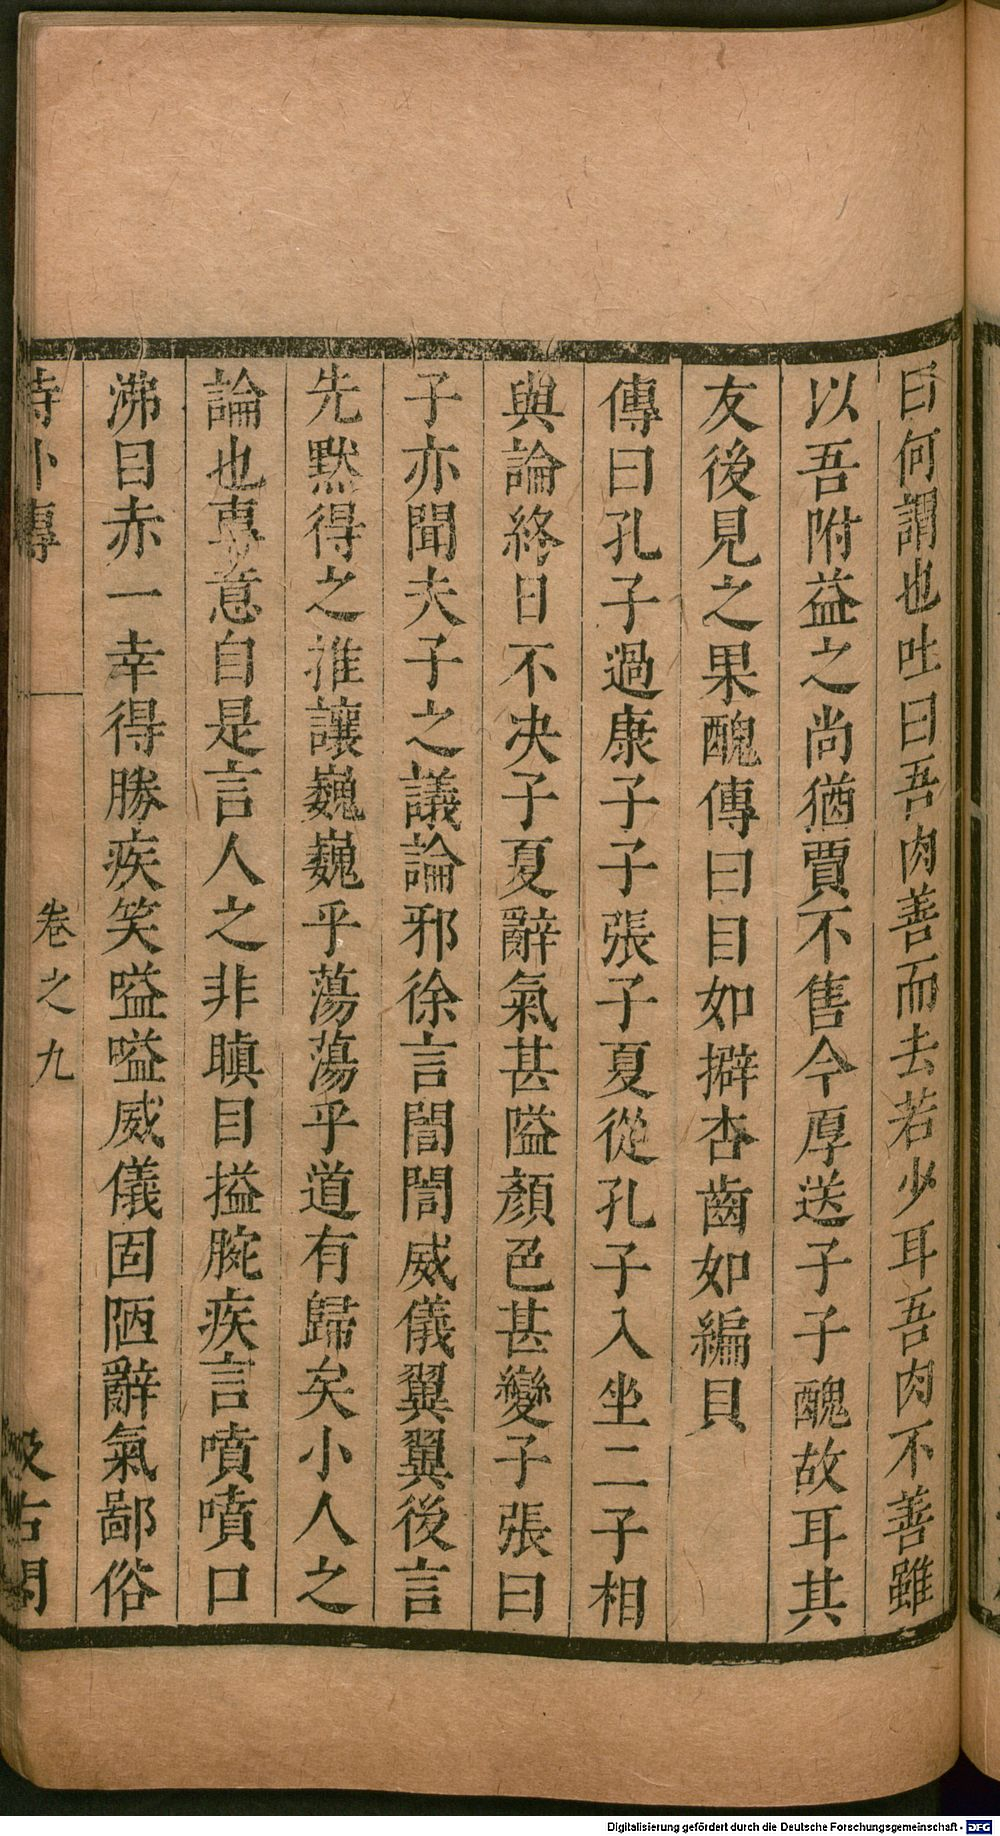 曰何謂也吐曰吾肉善而去若少耳吾肉不善雖
以吾附益之尚猶賈不售今厚送子子醜故耳其
友後見之果醜傳曰目如擗杏齒如編貝
傳曰孔子過康子子張子夏從孔子入坐二子相
與論終日不决子夏辭氣甚隘顏色甚變子張曰
子亦聞夫子之議論邪徐言誾誾威儀翼翼後言
先默得之推讓巍巍乎蕩蕩乎道有歸矣小人之
論也專意自是言人之非瞋目搤腕疾言噴噴口
沸目赤一幸得勝疾笑嗌嗌威儀固陋辭氣鄙俗
詩外傳 卷之九 汲古閣
Digitalisierung gefördert durch die Deutsche Forschungsgemeinschaft - DFG